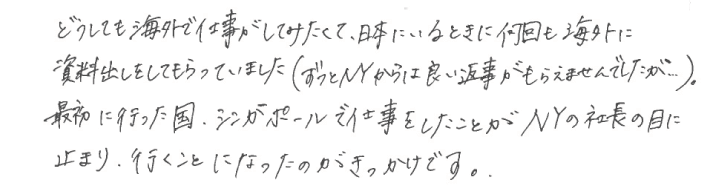 どうしても海外で仕事がしてみたくて、日本にいるときに何回も海外に
資料出しをしてもらっていました(ずっとNYからは良い返事がもらえませんでしたが…)。
最初に行った国、シンガポールで仕事をしたことがNYの社長の目に
止まり、行くことになったのがきっかけです。